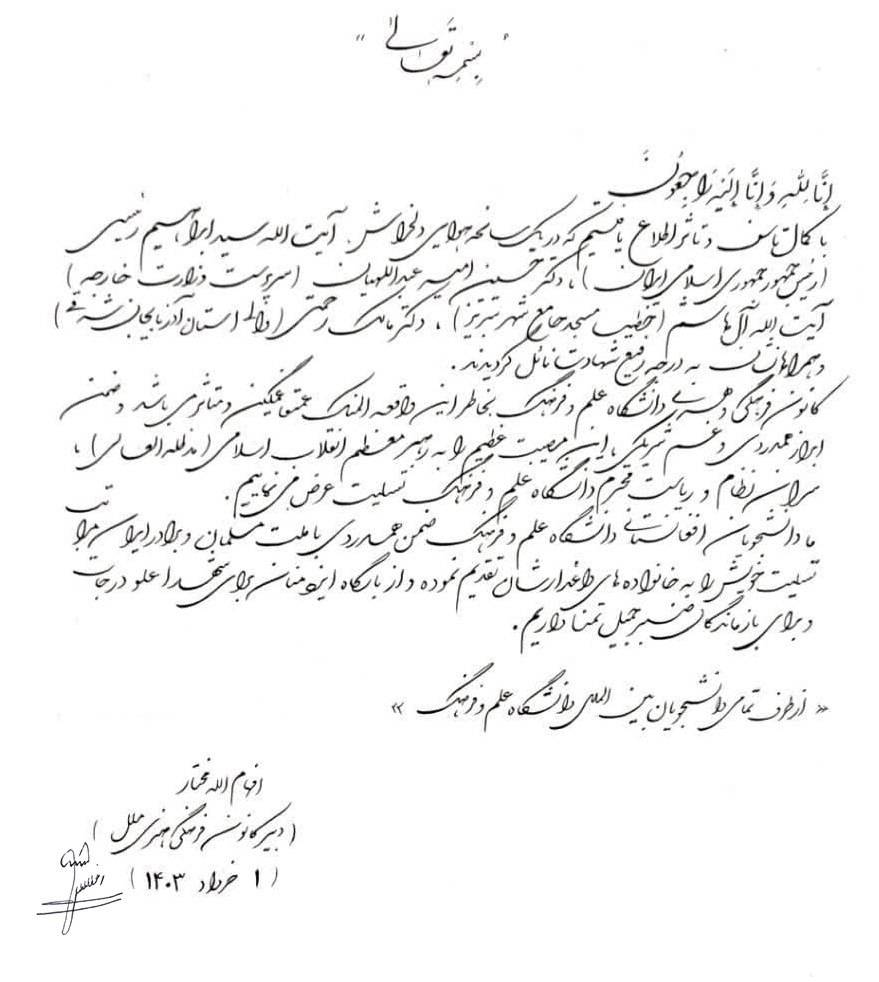 " بِسْمِهِ تَعَالیٰ "
إِنَّا لِلَّهِ وَ إِنَّا إِلَيْهِ رَاجِعُونَ
با کمال تاسف و تاثر اطلاع یافتیم که در یک سانحه هوایی دلخراش، آیت الله سید ابراهیم رئیسی
(رئیس جمهور جمهوری اسلامی ایران)، دکتر حسین امیر عبداللهیان (سرپرست وزارت خارجه)
آیت الله آل هاشم (خطیب مسجد جامع شهر تبریز)، دکتر مالک رحمتی (والی استان آذربایجان شرقی)
و همراهانشان به درجه رفیع شهادت نائل گردیدند.
کانون فرهنگی و هنری دانشگاه علم و فرهنگ بخاطر این واقعه المناک عمیقا غمگین و متاثر می باشد و ضمن
ابراز همدردی و غم شریکی، این مصیبت عظیم را به رهبر معظم انقلاب اسلامی (مدظله العالی)،
سران نظام و ریاست محترم دانشگاه علم و فرهنگ تسلیت عرض می نماییم.
ما دانشجویان افغانستانی دانشگاه علم و فرهنگ ضمن همدردی با ملت مسلمان و برادر ایران مراتب
تسلیت خویش را به خانواده های داغدارشان تقدیم نموده و از بارگاه ایزد منان برای شهدا علو درجات
و برای بازماندگان صبر جمیل تمنا داریم.
« از طرف تمامی دانشجویان بین المللی دانشگاه علم و فرهنگ »
افهام الله مختار
(دبیر کانون فرهنگی هنری ملل)
(۱ خرداد ۱۴۰۳)